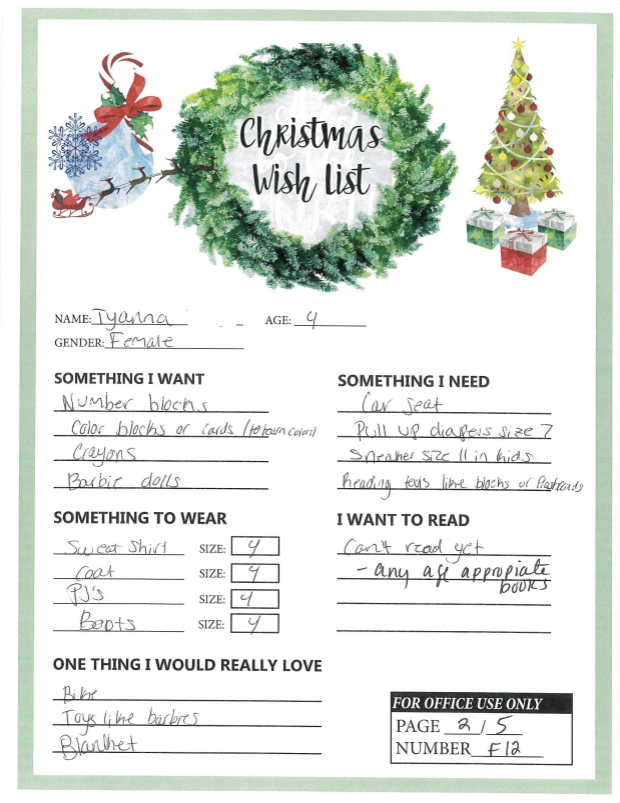 Christmas
Wish List
NAME: Iyanna AGE: 4
GENDER: Female
SOMETHING I WANT
Number blocks
Color blocks or cards (to learn colors)
Crayons
Barbie dolls
SOMETHING I NEED
Car seat
Pull up diapers size 7
Sneaker size 11 in kids
Reading tools like blocks or flashcards
SOMETHING TO WEAR
Sweat Shirt SIZE: 4
Coat SIZE: 4
PJ's SIZE: 4
Boots SIZE: 4
I WANT TO READ
Can't read yet
- any age appropiate
books
ONE THING I WOULD REALLY LOVE
Bike
Toys like barbies
Blanket
FOR OFFICE USE ONLY
PAGE 2 / 5
NUMBER F12